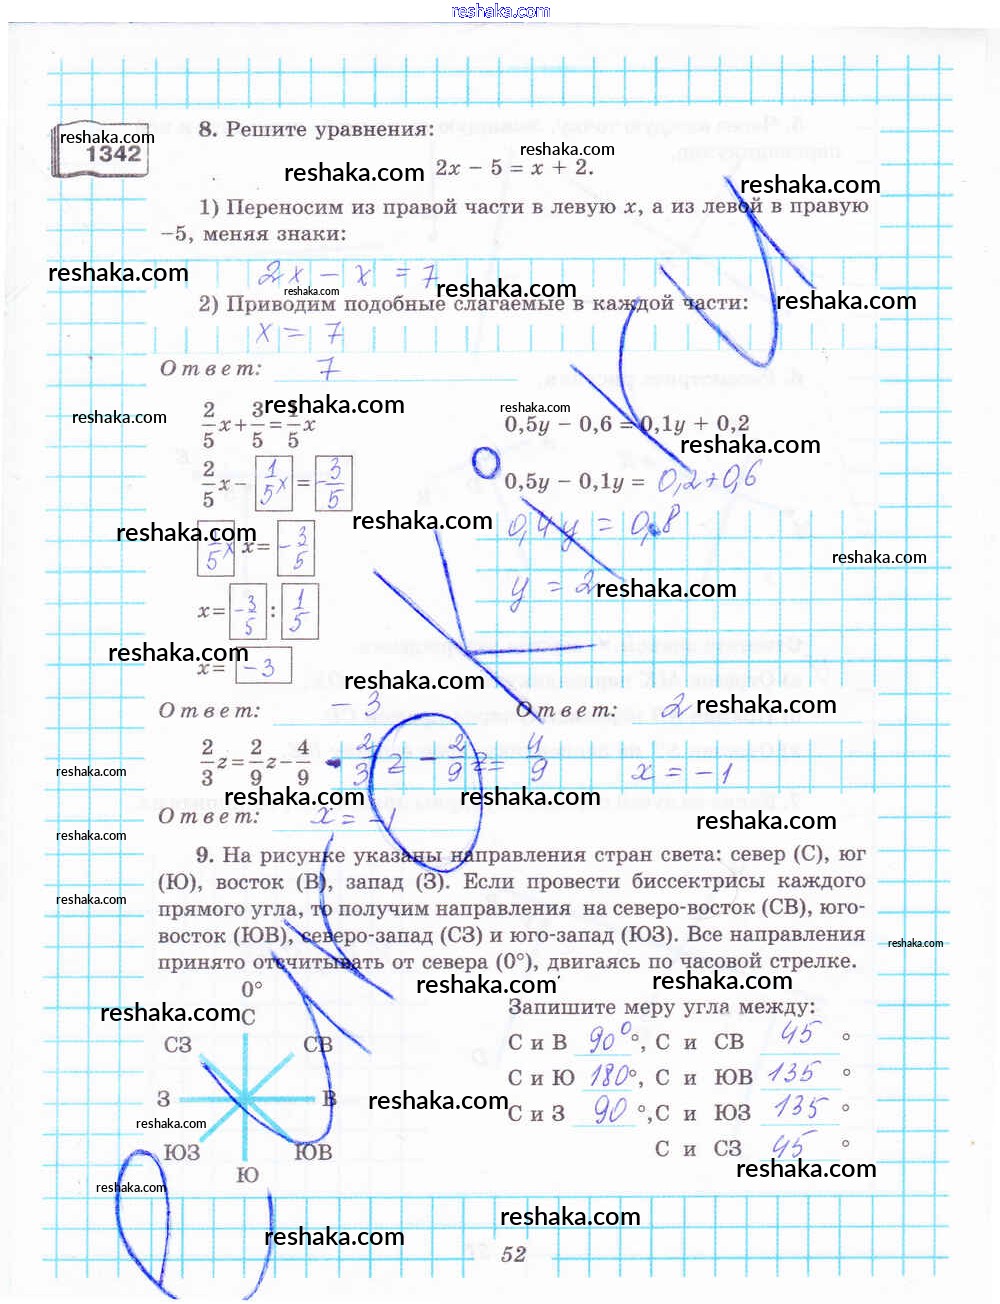 reshaka.com
reshaka.com
1342
8. Решите уравнения:
reshaka.com
reshaka.com
2x − 5 = x + 2.
reshaka.com
1) Переносим из правой части в левую x, а из левой в правую
−5, меняя знаки:
reshaka.com
2x − x = 7
reshaka.com
reshaka.com
2) Приводим подобные слагаемые в каждой части:
reshaka.com
x = 7
Ответ: 7
reshaka.com
reshaka.com
reshaka.com
2/5 x + 3/5 = 1/5 x
0,5y − 0,6 = 0,1y + 0,2
reshaka.com
2/5 x − 1/5 x = −3/5
0,5y − 0,1y = 0,2+0,6
reshaka.com
reshaka.com
0,4y = 0,8
1/5 x x = −3/5
reshaka.com
y = 2
reshaka.com
x = −3/5 : 1/5
reshaka.com
x = −3
reshaka.com
Ответ: −3
Ответ: 2
reshaka.com
2/3 z = 2/9 z − 4/9
2/3 z − 2/9 z = 4/9
x = −1
reshaka.com
reshaka.com
reshaka.com
Ответ: x = −1
reshaka.com
reshaka.com
9. На рисунке указаны направления стран света: север (С), юг
(Ю), восток (В), запад (З). Если провести биссектрисы каждого
reshaka.com
прямого угла, то получим направления на северо-восток (СВ), юго-
восток (ЮВ), северо-запад (СЗ) и юго-запад (ЮЗ). Все направления
reshaka.com
принято отсчитывать от севера (0°), двигаясь по часовой стрелке.
reshaka.com
reshaka.com
0°
Запишите меру угла между:
reshaka.com
С
СЗ
СВ
С и В 90° °, С и СВ 45 °
С и Ю 180 °, С и ЮВ 135 °
З
В
reshaka.com
С и З 90 °, С и ЮЗ 135 °
reshaka.com
ЮЗ
ЮВ
С и СЗ 45 °
reshaka.com
Ю
reshaka.com
reshaka.com
reshaka.com
reshaka.com
52